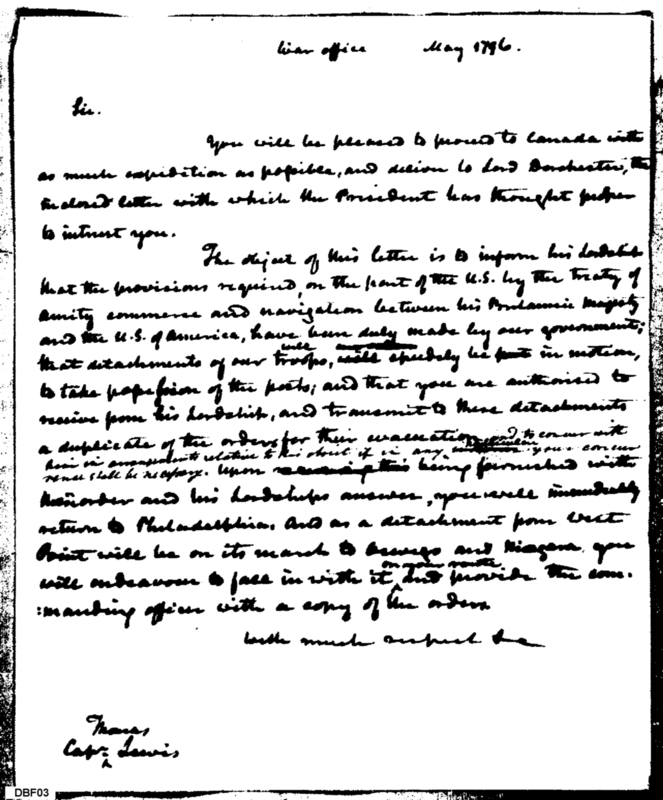 War office May 1796.
Sir.
You will be pleased to proceed to Canada with
as much expedition as possible, and deliver to Lord Dorchester, the
inclosed letter with which the President has thought proper
to intrust you.
The object of this letter is to inform his Lordship
that the provisions required, on the part of the U.S. by the treaty of
amity commerce and navigation between his Britannic Majesty
and the U.S. of America, have been duly made by our government;
that detachments of our troops, will speedely be put in motion,
to take possession of the posts; and that you are authorised to
receive from his Lordship, and transmit to these detachments
a duplicate of the orders for their evacuation and to concur with
him in arrangements relative to this object if in any your concur
rence shall be necessary. Upon being furnished with
order and his Lordships answer, you will immediately
return to Philadelphia. And as a detachment from West
Point will be on its march to Oswego and Niagara you
will endeavour to fall in with it on your route and provide the com.
:manding officer with a copy of the orders.
With much respect &c
Thomas
Capn. Lewis
DBF03